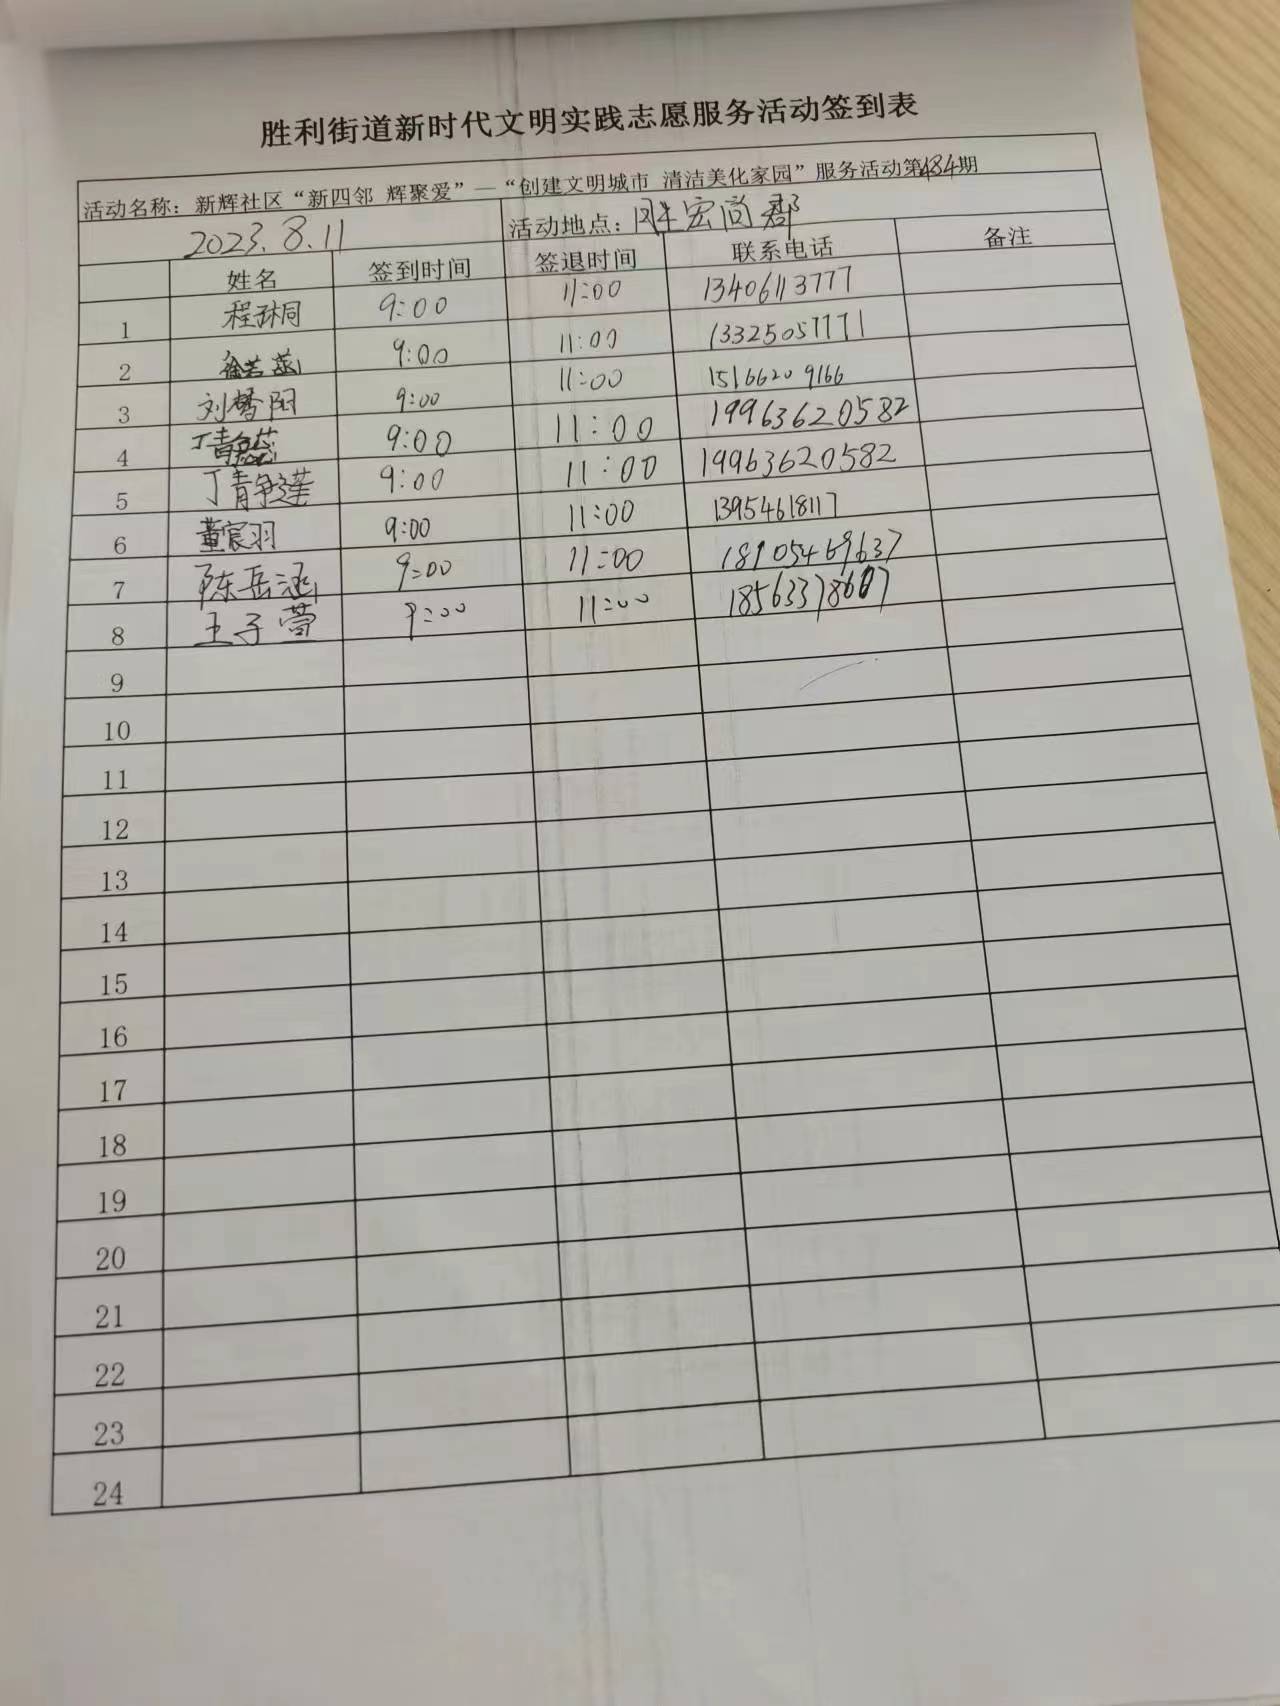 胜利街道新时代文明实践志愿服务活动签到表
活动名称：新辉社区“新四邻 辉聚爱”—“创建文明城市 清洁美化家园”服务活动第484期
2023.8.11 活动地点：宏尚郡
姓名 签到时间 签退时间 联系电话 备注
1 程琳桐 9:00 11:00 13406113777
2 徐若 9:00 11:00 13325057771
3 刘 阳 9:00 11:00 15166209166
4 丁青 9:00 11:00 19963620582
5 丁青 莲 9:00 11:00 19963620582
6 董宸羽 9:00 11:00 13954618117
7 陈岳涵 9:00 11:00 18105469637
8 王子萱 9:00 11:00 18563378607
9
10
11
12
13
14
15
16
17
18
19
20
21
22
23
24